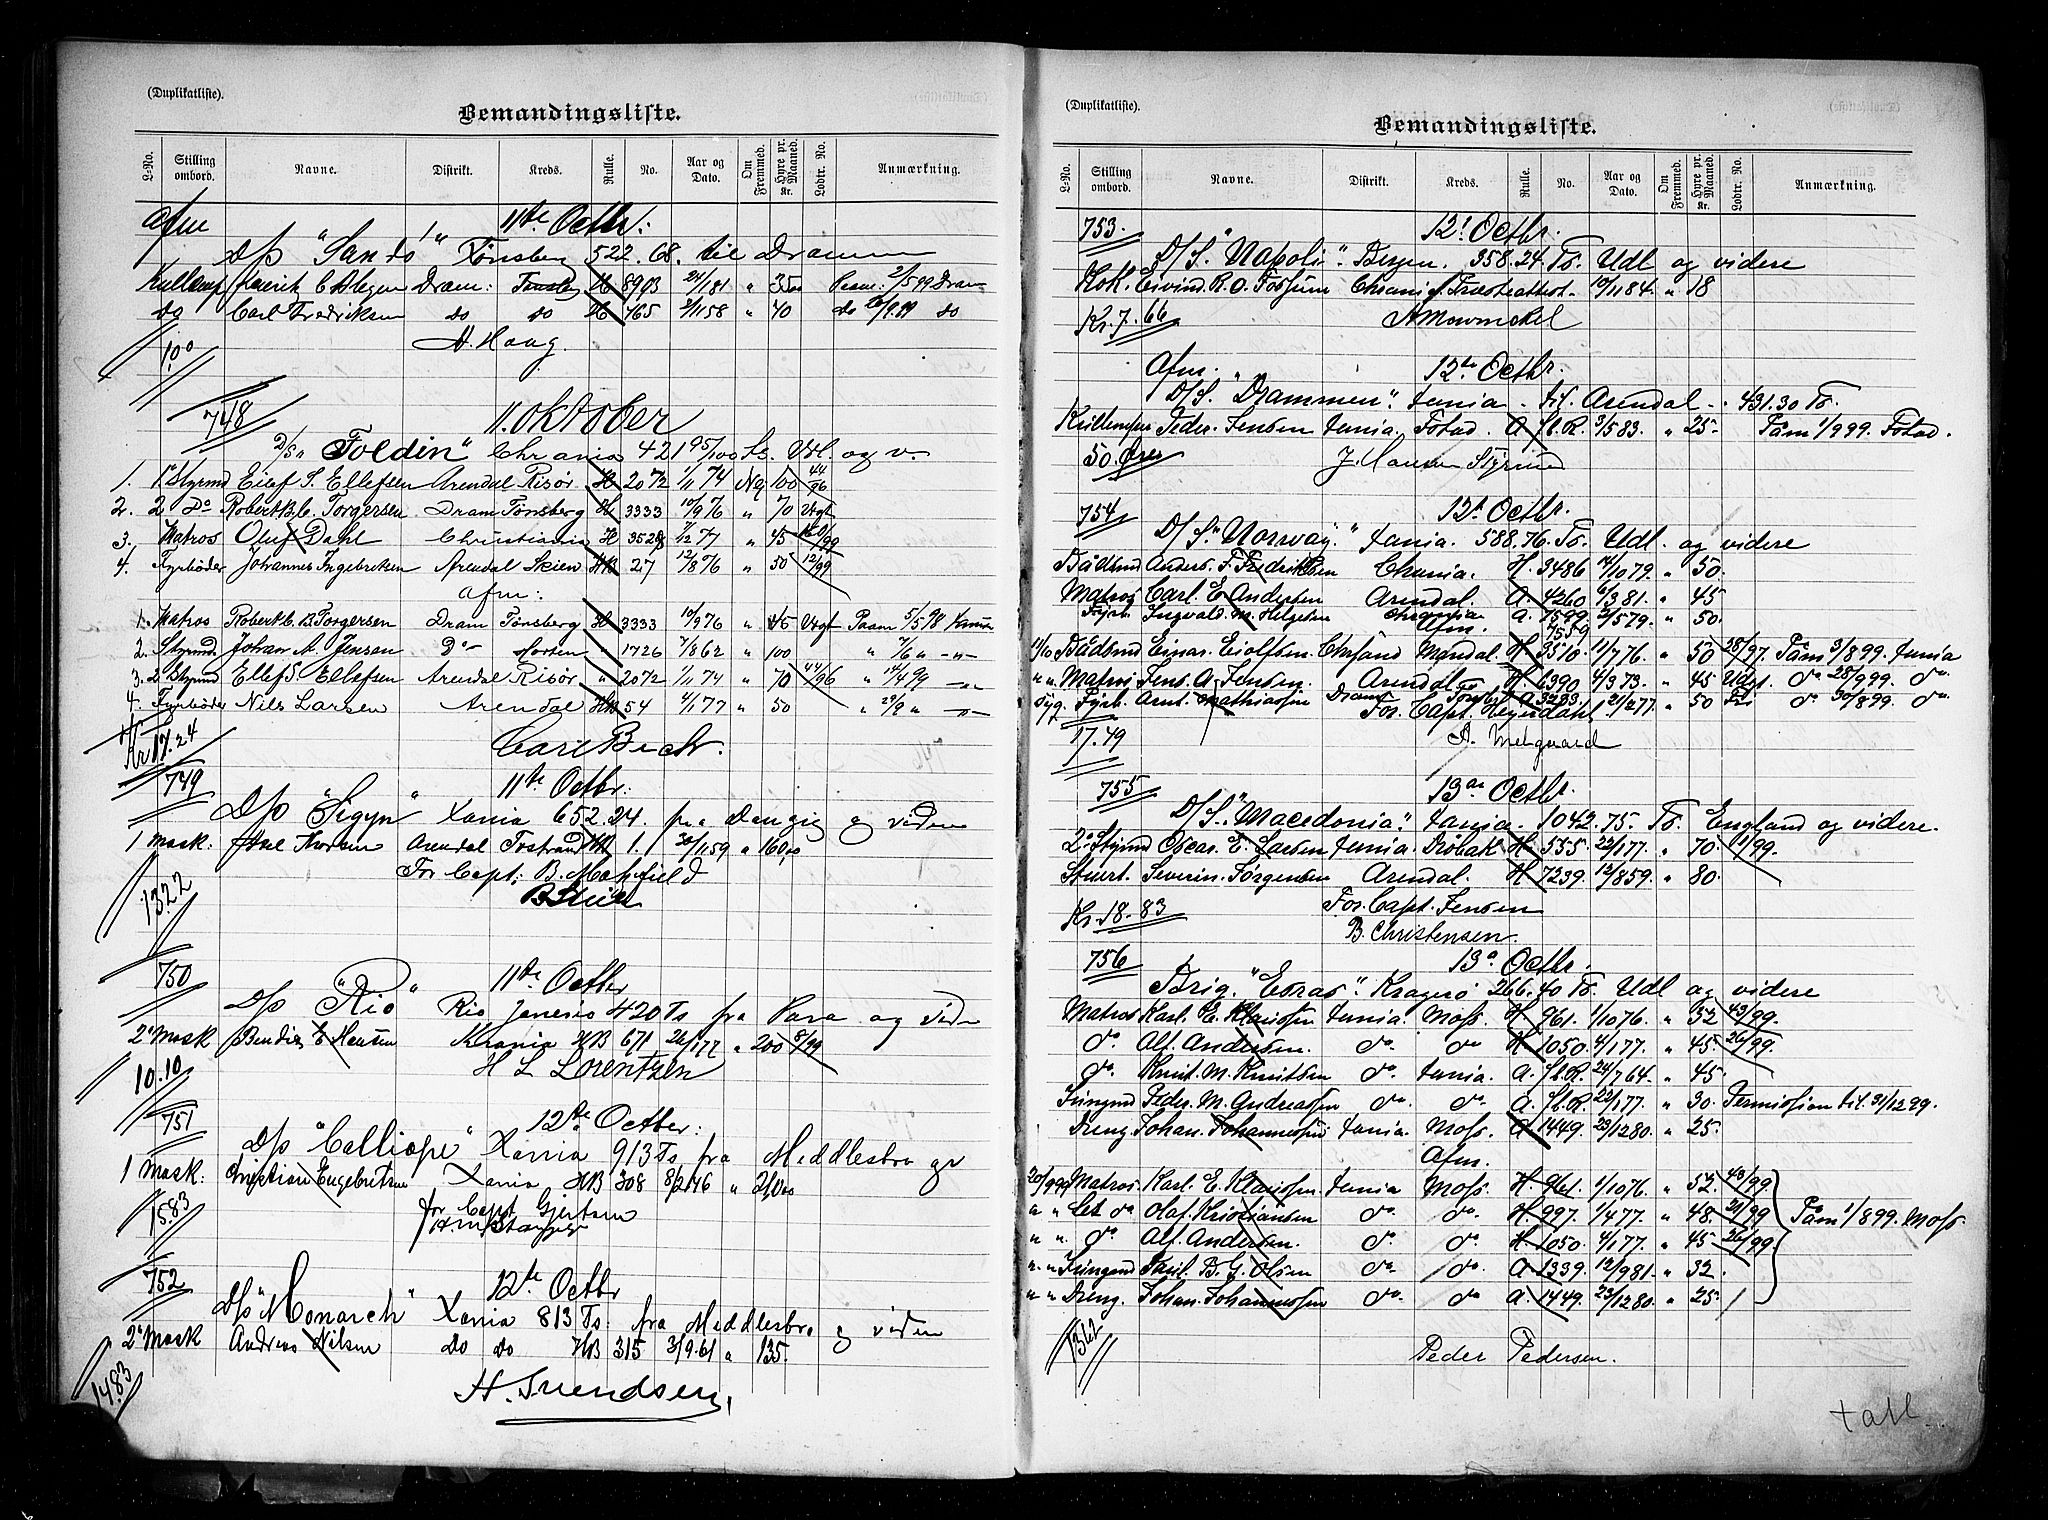 (Duplikatliste).
Bemandingsliste.
L-No. Stilling ombord. Navne. Distrikt. Kreds. Rulle. No. Aar og Dato. Om Fremmed. Hyre pr. Maaned. Kr. Lodtr. No. Anmærkning.
Afm 11te Octbr:
D/S "Sandö" Tønsberg 522.68. til Drammen
Henrik C. Dram: H 8903 24/1 81 " 35
do Carl Fredriksen do do H 465 2/11 58 " 40 do do
H. Haag.
748 11. oktober
D/S "Foldin" Chrania 421 95/100 Ts. Udl. og v.
1. 1 Styrmd Eilef S. Ellefsen Arendal Risör H 2072 1/11 74 Ng 100 44/96
2. 2 Do Robert B.C. Torgersen Dram Tønsberg H 3333 10/9 76 " 70 Udgt
3. Matros Oluf Dahl Christiania H 3528 " 45
4. Fyrböder Johannes Ingebriksen Arendal Skien HB 27 12/8 76 " 50 12/99
afm:
1. Matros Robert C. B. Torgersen Dram Tønsberg H 3333 10/9 76 " 45 Udgt Paam 5/5 98
2. Styrmd. Johan A. Jensen Do Horten " 1726 7/8 62 " 100 " 7/6 " -"-
3. 2 Styrmd Ellef S. Ellefsen Arendal Risör " 2072 1/11 74 " 70 44/96 " 14/4 99 -"-
4. Fyrböder Nils Larsen Arendal HB 54 4/1 77 " 50 " 29/9 " -"-
Kr 17.24 Carl Bech.
749 11te Octbr:
D/S "Sigyn" Xania 652.24. fra Danzig og videre
1 Mask. Arendal HB 1. 30/11 59 " 160,00
For Capt: B.
13.22
750 11te Octber
D/S "Rio" Rio Janerio 420 Ts fra Para og vide
2' Mask Bendix E Hansen Krania HB 671 26/1 77 " 200 8/99
10.10 H L Lorentzen
751 12te Octber:
D/S "Calliope" Xania 913 Ts fra Meddlesbro og v
1 Mask: Christian Engebretsen Xania HB 308 8/2 46 " 210,00
15.83 for Capt Gjertsen
752 12te Octbr
D/S "Monarch" Xania 813 Ts. fra Meddlesbro og viden
2' Mask Andreas Nilsen do do HB 315 3/9.61 " 135.
14.83 H. Svendsen.
(Duplikatliste).
Bemandingsliste.
L-No. Stilling ombord. Navne. Distrikt. Kreds. Rulle. No. Aar og Dato. Om Fremmed. Hyre pr. Maaned. Kr. Lodtr. No. Anmærkning.
753. 12' Octbr.
D/S. "Napoli". Bergen. 358.24. To. Udl og videre
Kok. Eivind. R. O. Fossum Chrania 10/11 84. " 18
Kr. 7.66
Afm. 12te Octbr.
D/S. "Drammen". Xania. til Arendal. 431.30 To.
Peder. Jensen Xania. Fstad. A fl.R. 3/5 83. " 25. Paam 1/9 99. Fstad.
50. Öre J. Hansen Styrmd
754 12' Octbr.
D/S. "Norway." Xania. 588.76. To. Udl. og videre
Bådsmd Anders. F. Fredriksen Chrania. H. 3486 14/10 79. " 50.
Matros Carl. E. Andersen Arendal. A. 4260 6/3 81. " 45
Fyrb. Ingvald. M. Helgesen Chrania A. 7599 2/5 79. " 50.
Afm. 7559
14/10 Bådsmd Einar. Eiolfsen. Chrsand Mandal. H. 3510. 11/7 76. " 50 28/97. Paam. 3/8 99. Xania
" " Matros Jens. A. Jensen. Arendal. H 6390 4/3 73. " 45 Udgt. do 28/9 99. do
Syg. Fyrb. Arnt. Mathiasen Dram. A. 3283. 21/2 77. " 50 Fri do 30/8 99. do
For. Capt. Heyerdahl
17.79 A. Melgaard
755 13de Octbr.
D/S. "Macedonia". Xania. 1042.75. To. England og videre.
2' Styrmd Oscar. E. Larsen Xania. Dröbak H. 555 22/1 77. " 70. 11/99.
Stuert. Severin. Jørgensen Arendal. H. 7239. 12/8 59. " 80.
Kr. 18.83 For. Capt. Jensen
B. Christensen.
756 13' Octbr.
Brig. "Esras". Kragerö 266.40 To. Udl og videre
Matros Karl. E. Klaussen Xania. Moss. H. 961. 1/10 76. " 52 43/99.
do. Alf. Andersen. do. do H. 1050. 4/1 77. " 45. 26/99.
do. Knut. M. Knutsen do. Xania. A. fl.R. 24/7 64. " 45.
Jungmd Peder. M. Andreassen do. do. A. fl.R. 22/1 77. " 30. Permission til. 31/12 99.
Dreng. Johan. Johannessen Xania. Moss. A. 1449. 23/12 80. " 25.
Afm.
20/9 99 Matros. Karl. E. Klausen. Xania Moss. H. 961. 1/10 76. " 52. 43/99
" " Let do Olaf. Kristiansen do. do. H. 997. 1/4 77. " 48. 21/99 Paam 1/8 99. Moss.
" " do. Alf. Andersen. do. do. H. 1050. 4/1 77. " 45 26/99.
" " Jungmd B. G. Olsen do. do. A 1339. 12/9 81. " 32.
" " Dreng. Johan. Johannessen do. do A. 1449. 23/12 80. " 25.
13.62
Peder Pedersen.